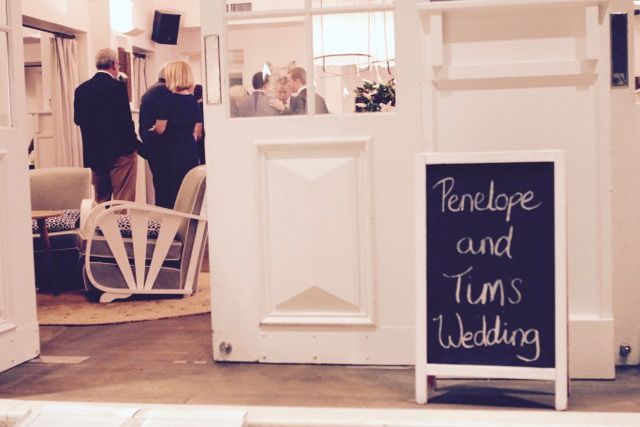 Penelope
and
Tims
Wedding